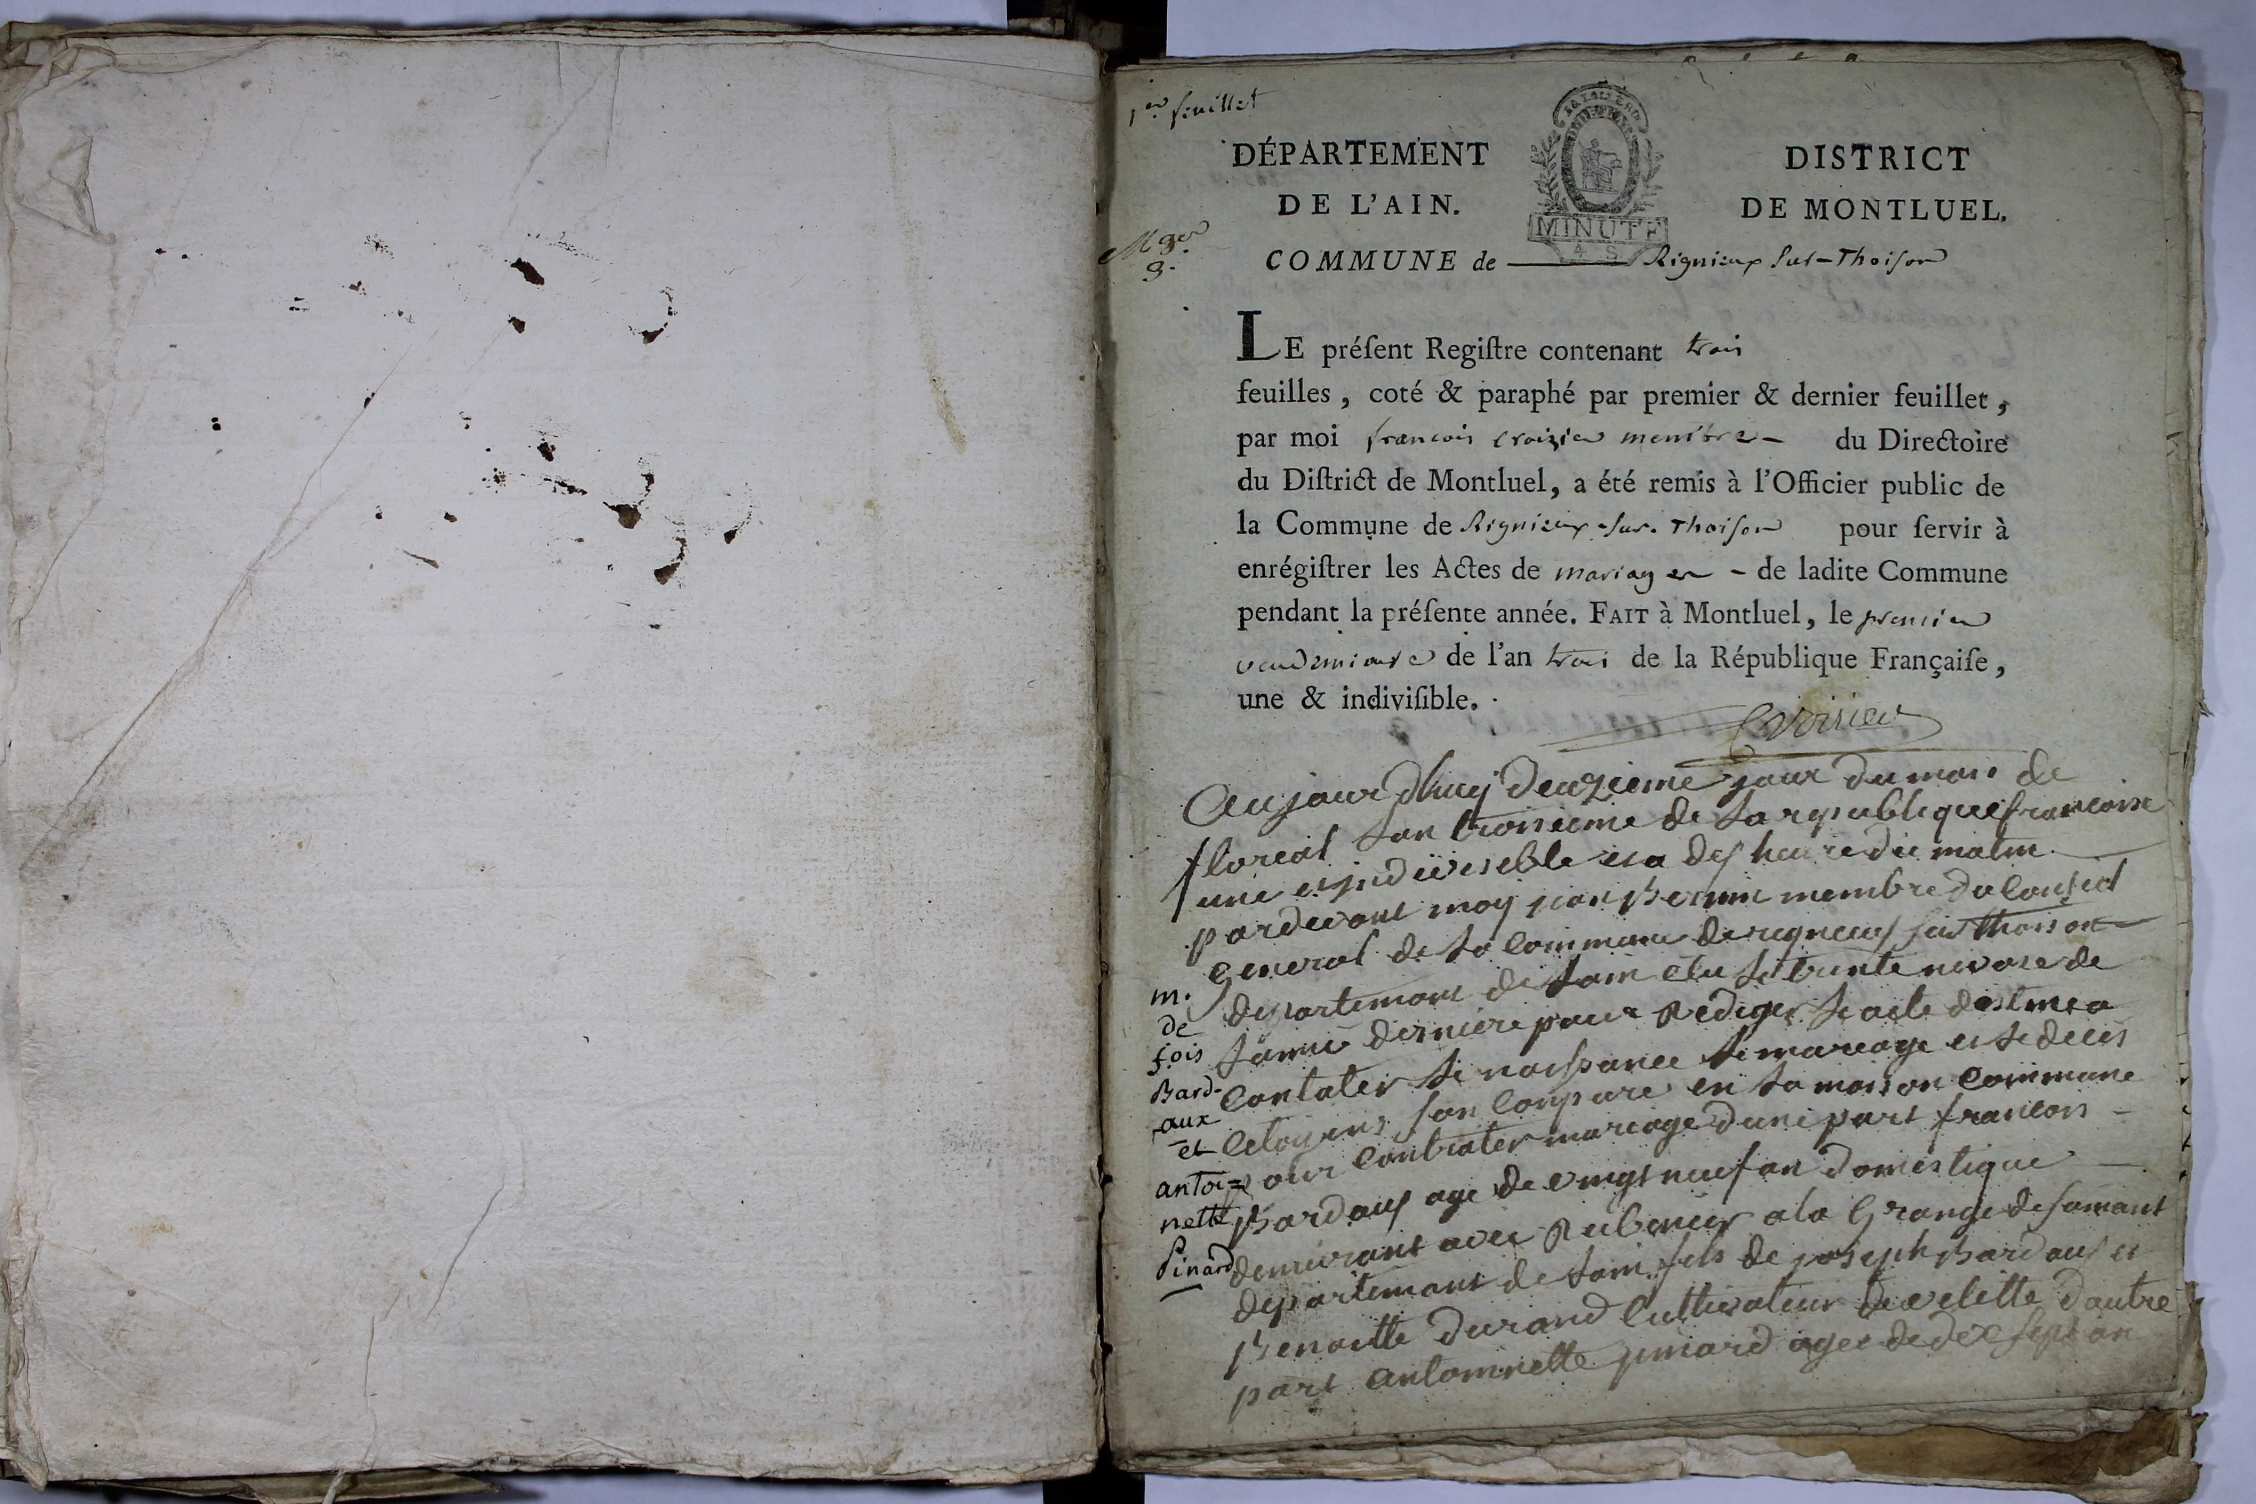 1er feuillet
DÉPARTEMENT
DE L'AIN.
DISTRICT
DE MONTLUEL.
MINUTE
4 S
COMMUNE de Rignieux Sur-Thoison
LE préſent Regiſtre contenant trois
feuilles, coté & paraphé par premier & dernier feuillet,
par moi francois croizier membre du Directoire
du Diſtrict de Montluel, a été remis à l'Officier public de
la Commune de Rignieux-Sur-Thoison pour ſervir à
enrégiſtrer les Actes de mariages de ladite Commune
pendant la préſente année. FAIT à Montluel, le premier
vendemiaire de l'an trois de la République Françaiſe,
une & indiviſible.
Croizier
Aujourdhuy deuzieme jour du mois de
floreal lan troisieme de la republique francoise
une et indivesible et a dix heure du matin
pardevant moy jean membre du conseil
general de la commune de rigneux sur thoison
departemant de lain élu le trente nivose de
lanné derniere pour rediger le acte destiné a
contater le naissance le mareage et le deces
citoyens son conpare en la maison commune
pour contrater mareage dune part francois
Bardaux age de vingt neuf an domestique
demeurant avec a la Grange de
departemant de lain fils de joseph Bardaux et
Benoitte durand cultivateur de velette dautre
part antoinnette pinard agee de dix sept an
m.
de
fois
Bard-
aux
et
antoi=
nette
Pinard